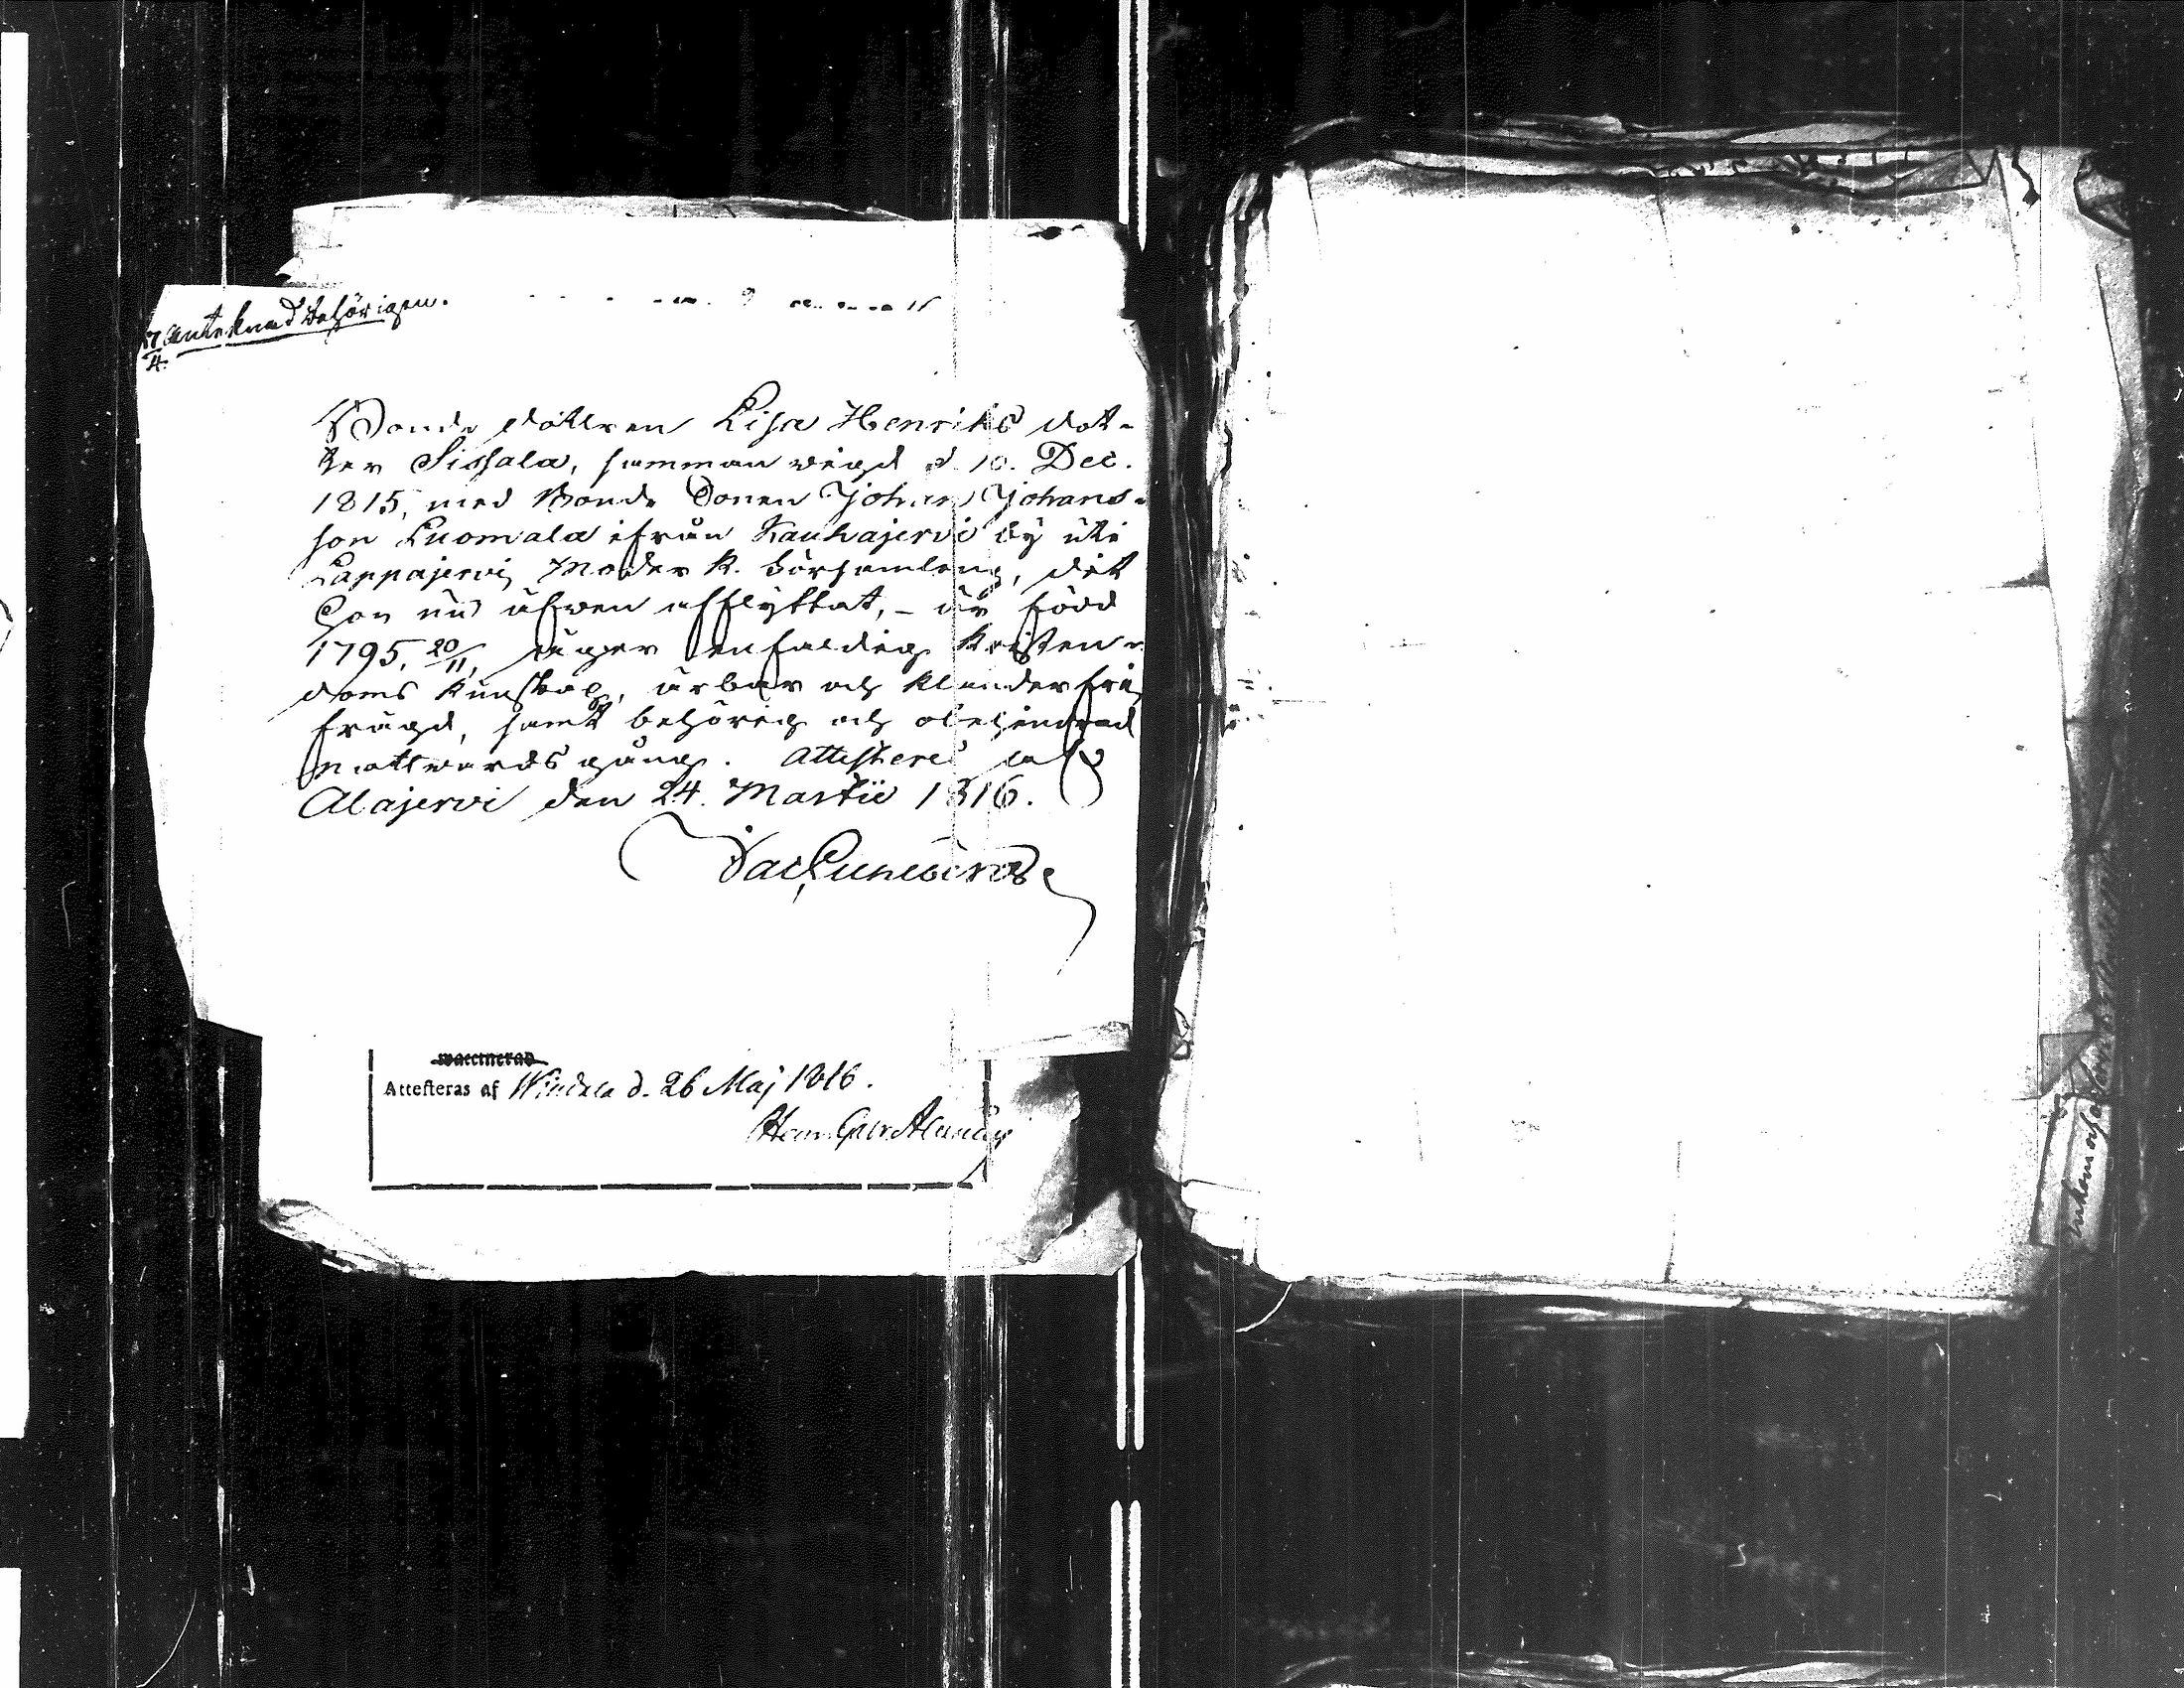 Anteknad behörigen.
Bonde dottren Lisa Henriks dot-
ter Sissala, samman wigd d. 10. Dec.
1815, med Bonde Sonen Johan Johans-
son Luomala ifrån Kauhajervi by uti
Lappajervi Moder K. församling, dit
hon nu äfwen afflyttat, - är född
1795, 20/11, äger enfaldig Kristen-
doms kunskap, ärbar och klanderfri
frägd, samt behörig och obehindrad
nattwards gång. Attesterar
Alajervi den 24. Martii 1816.
waccinerad
Attesteras af Windala d. 26 Maj 1816.